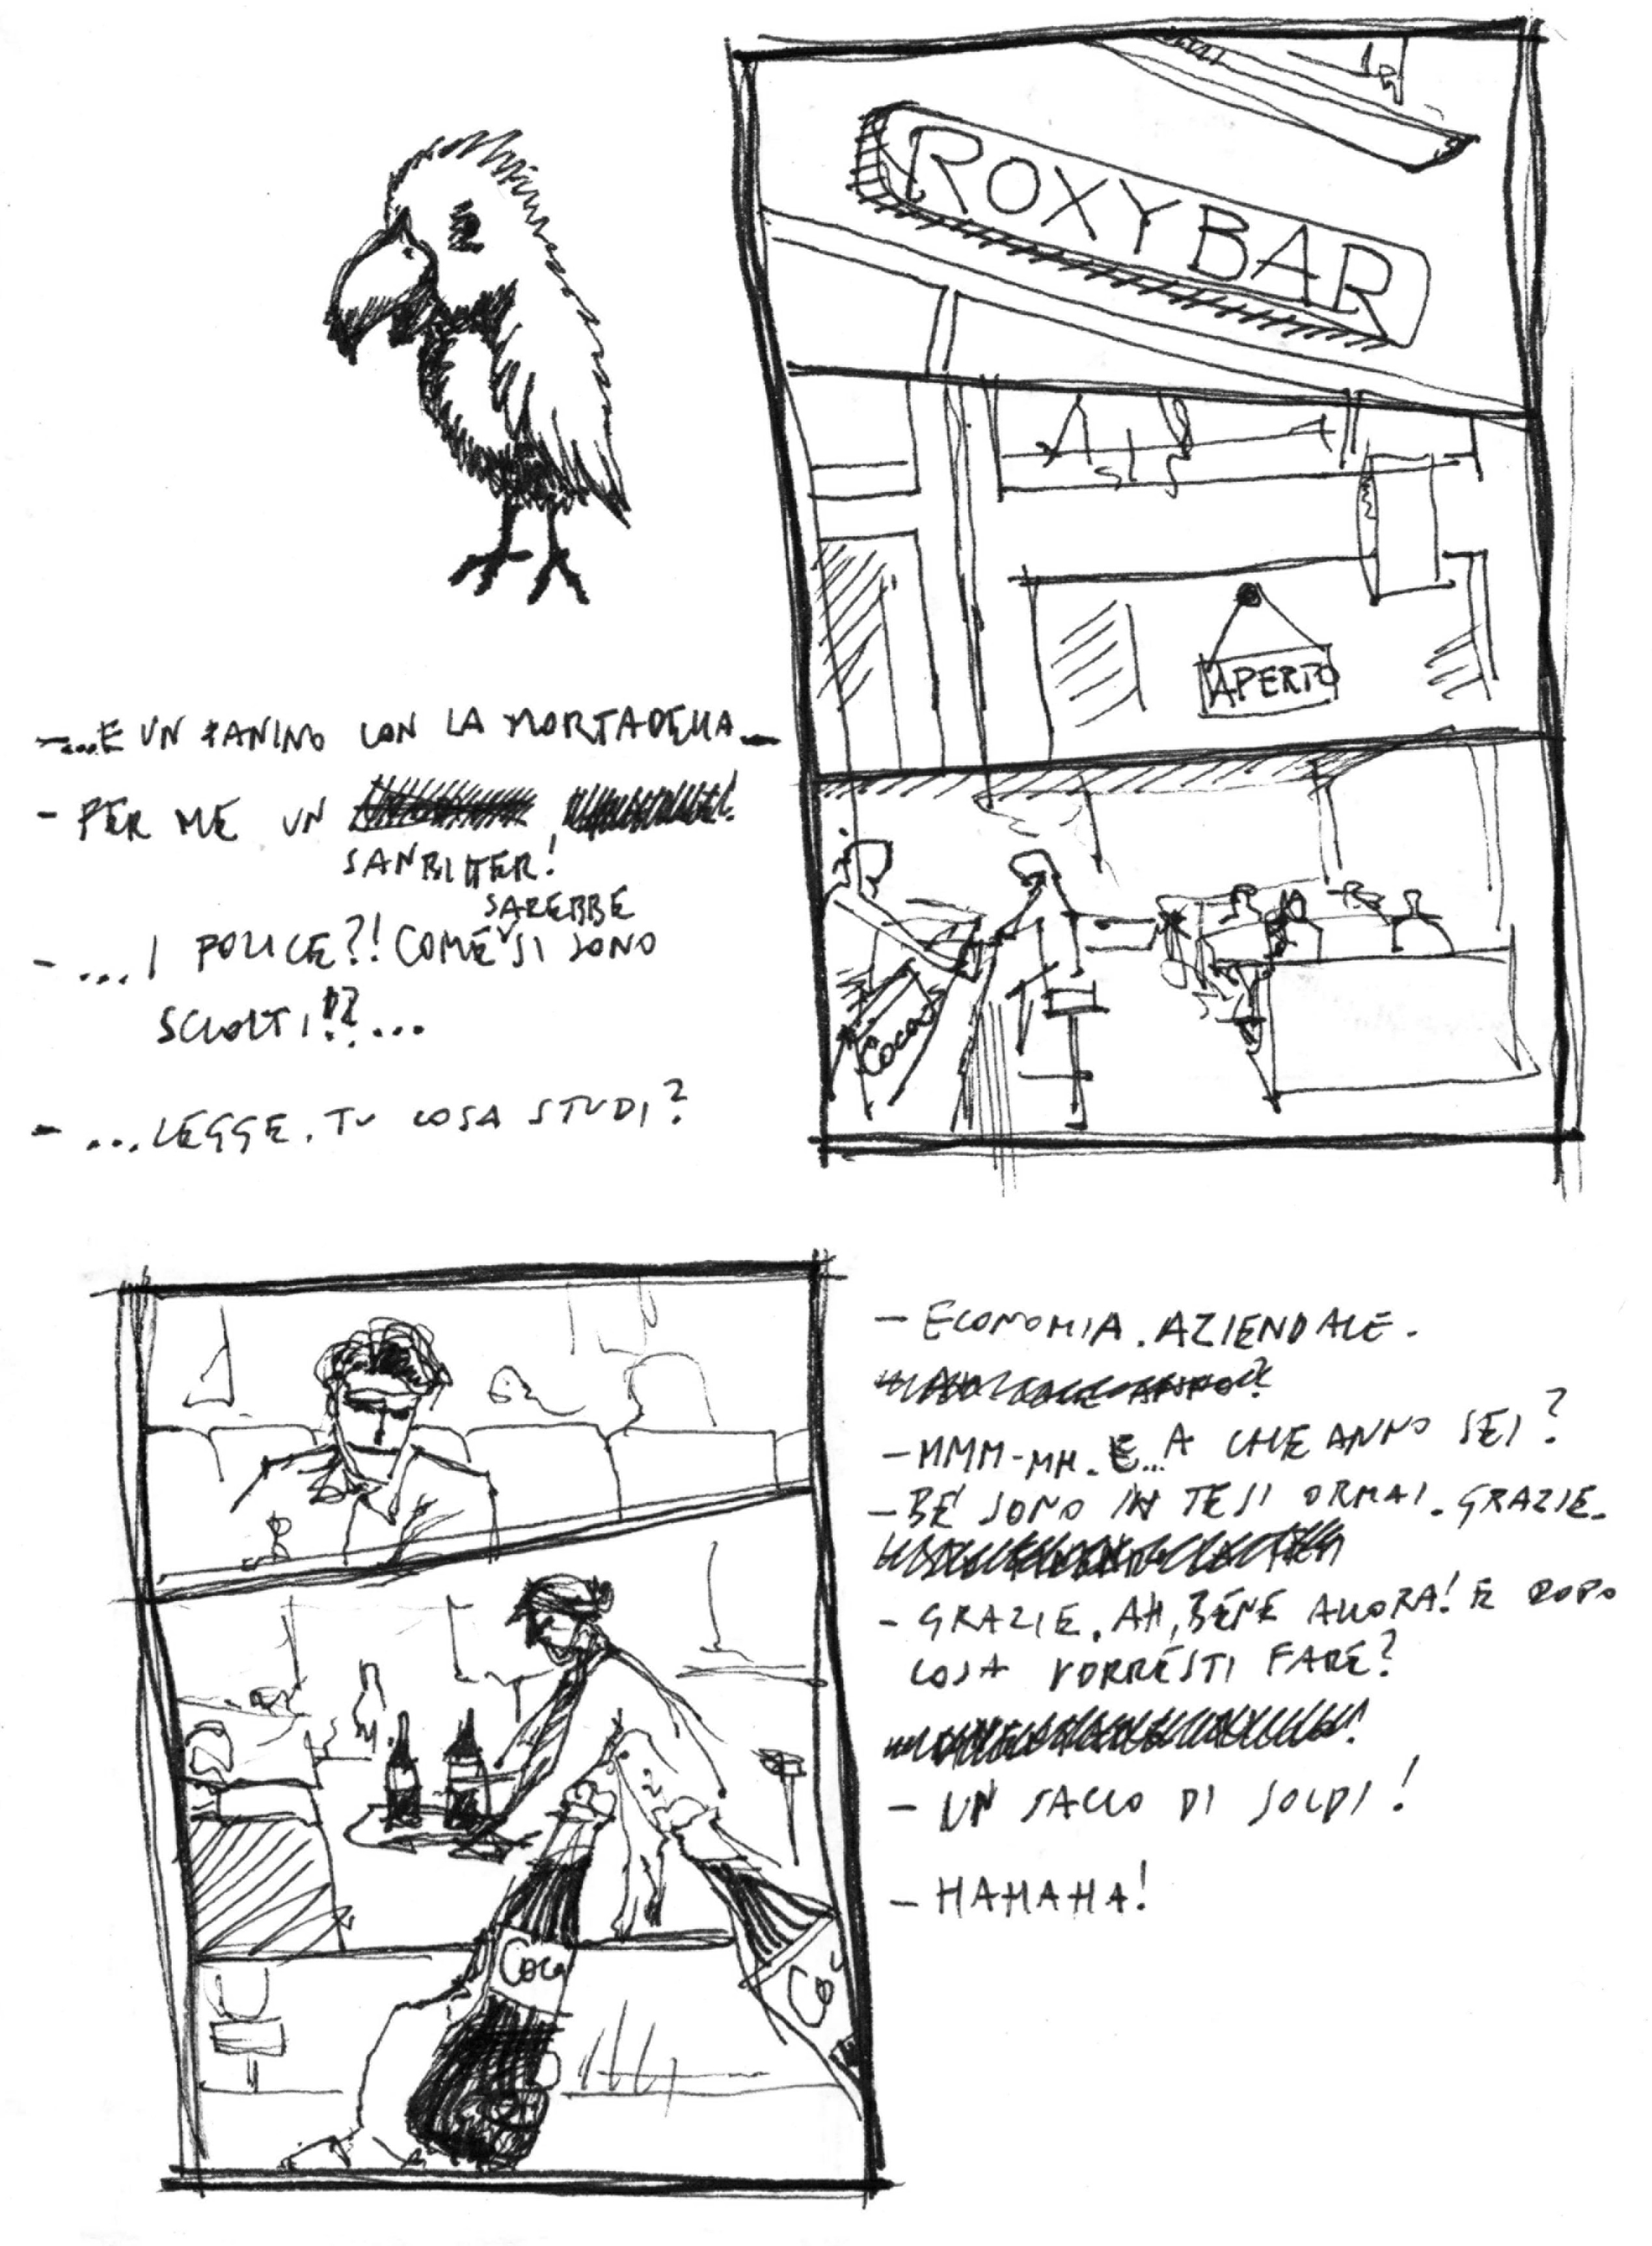 ROXY BAR
APERTO
Coca
-...E UN PANINO CON LA MORTADELLA-
- PER ME UN
SANBITTER!
SAREBBE
- ...I POLICE?! COME SI SONO
SCIOLTI!?...
- ...LEGGE. TU COSA STUDI?
Coca
Co
- ECONOMIA. AZIENDALE.
- MMM-MH. E... A CHE ANNO SEI?
- BE' SONO IN TESI ORMAI. GRAZIE.
- GRAZIE. AH, BENE ALLORA! E DOPO
COSA VORRESTI FARE?
- UN SACCO DI SOLDI!
- HAHAHA!